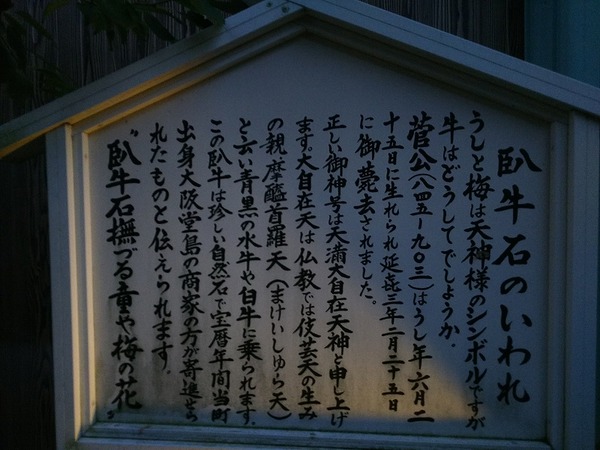 臥牛石のいわれ
うしと梅は天神様のシンボルですが
牛はどうしてでしょうか.
菅公(八四五~九〇三)はうし年六月二
十五日に生れられ延㐂三年二月二十五日
に御薨去されました。
正しい御神号は天満大自在天神と申し上げ
ます。大自在天は仏教では伎芸天の生み
の親、摩醯首羅天(まけいしゅら天)
と云い青黒の水牛や白牛に乗られます.
この臥牛は珍しい自然石で宝暦年間当町
出身大阪堂島の商家の方が寄進せら
れたものと伝えられます.
“臥牛石撫づる童や梅の花”